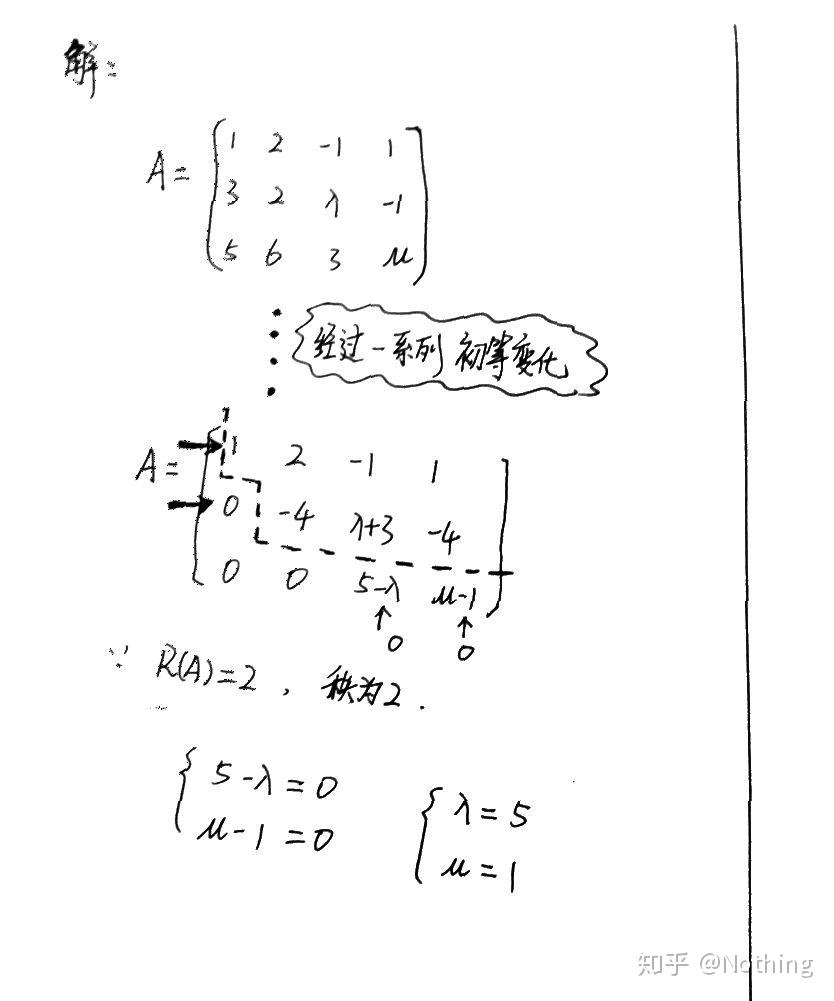 解：
A= [1 2 -1 1
3 2 λ -1
5 6 3 μ]
经过一系列初等变化
A= [1 2 -1 1
0 -4 λ+3 -4
0 0 5-λ μ-1]
↑ ↑
0 0
∵ R(A)=2，秩为2.
{ 5-λ=0 { λ=5
μ-1=0 μ=1
知乎 @Nothing